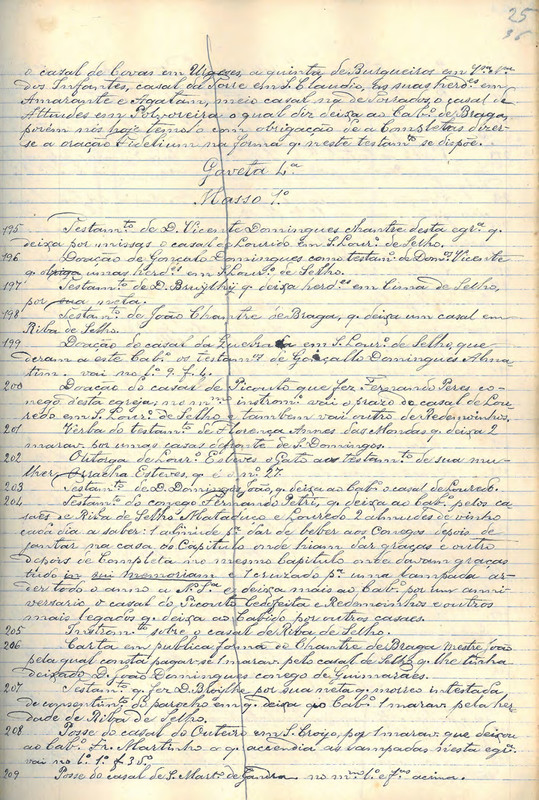 25
36
o casal de Covas em Urgeses, a quinta de Burgueiros em
dos Infantes, casal da Torre em S. Claudio, suas herd.es em
Amarante e Agatam, meio casal na de Soirados, o casal de
Attaides em Polvoreira o qual diz deixa ao Cab.o de Braga,
porem nós hoje temol-o com obrigação de a Completas dizer-
se a oração Fidelium na forma q. neste testam.to se dispoe.
Gaveta 4.a
Masso 1.o
195 Testam.to de D. Vicente Domingues Chantre desta egr.a q.
deixa por missas o casal do Lourido em S. Lour.o de Selho.
196 Doação de Gonçalo Domingues como testam.o de Dom.os Vicente
q. deixa umas herd.es em S. Lour.o de Selho.
197 Testam.to de D. q. deixa herd.es em Cima de Selho,
por sua neta.
198 Testam.to de João Chantre de Braga, q. deixa um casal em
Riba de Selho.
199 Doação do casal da em S. Lour.o de Selho, que
deram a este Cab.o os testam.os de Gonçallo Domingues
vai no l.o 9. f. 4.
200 Doação do casal do Picouto que fez Fernando Peres co-
nego desta egreja, no m.mo instrom.to vai o prazo do casal de Lou-
redo em S. Lour.o de Selho e tambem vai outro de Redemoinhos.
201 Verba do testam.to de Florença Annes das q. deixa 2
marav. por umas casas defronte de S. Domingos.
202 Outorga de Lour.o Esteves o Gato aos testam.to de sua mu-
lher Orracha Esteves, q. é n.o 27.
203 Testam.to de D. Domingos João, q. deixa ao Cab.o o casal de Louredo.
204 Testam.to do conego Fernando Petri, q. deixa ao Cab.o pelos ca-
saes de Riba de Selho Mataduço e Louredo 2 almudes de vinho
cada dia a saber: 1 almude p.a dar de beber aos Conegos depois de
jantar na casa do Capitulo onde hiam dar graças e outro
depois de Completa no mesmo Capitulo onde davam graças
tudo in sui memoriam e 1 cruzado p.a uma lampada ar-
der todo o anno a N. S.a e deixa mais ao Cab.o por um anni-
versario o casal do Picouto Cedofeita e Redemoinhos e outros
mais legados q. deixa ao Cabido por outros casaes.
205 Instrom.to sobre o casal de Riba de Selho.
206 Carta em publica forma do Chantre de Braga Mestre João
pela qual consta pagar-se 1 marav. pelo casal de Selho q. lhe tinha
deixado D. João Domingues conego de Guimarães.
207 Testam.to q. fez D. por sua neta q. morreo intestada
de consentim.to do parocho em q. deixa ao Cab.o 1 marav. pela her-
dade de Riba de Selho.
208 Posse do casal do Outeiro em S. Troijo, por 1 marav. que deixou
ao Cab.o Fr. Martinho o q. accendia as lampadas nesta egr.a
vai no l.o 1.o f. 35.
209 Posse do casal de S. Mart.o de Gandra no m.mo l.o e f.as acima.